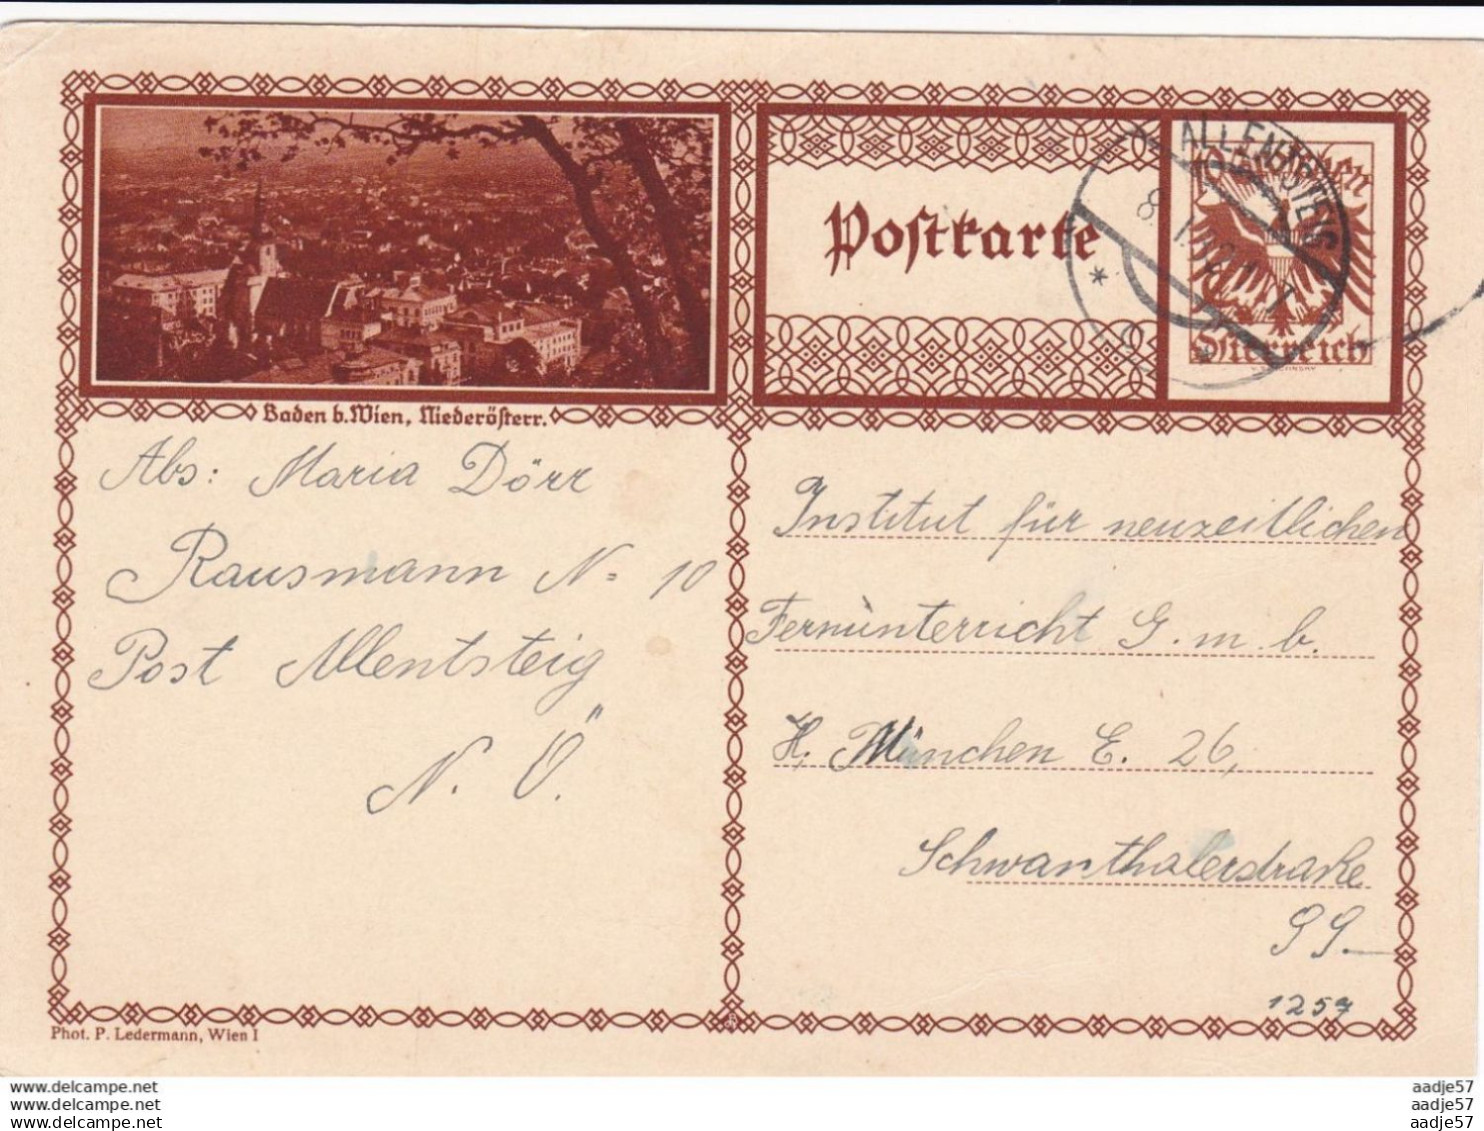 Baden b. Wien, Niederösterr.
Postkarte
10 Groschen
Österreich
ALLENTSTEIG
Abs: Maria Dörr
Rausmann N= 10
Post Allentsteig
N. Ö.
Institut für neuzeitlichen
Fernunterricht G. m. b.
H. München E. 26,
Schwanthalerstraße
99.
1257
Phot. P. Ledermann, Wien I
www.delcampe.net
www.delcampe.net
www.delcampe.net
aadje57
aadje57
aadje57